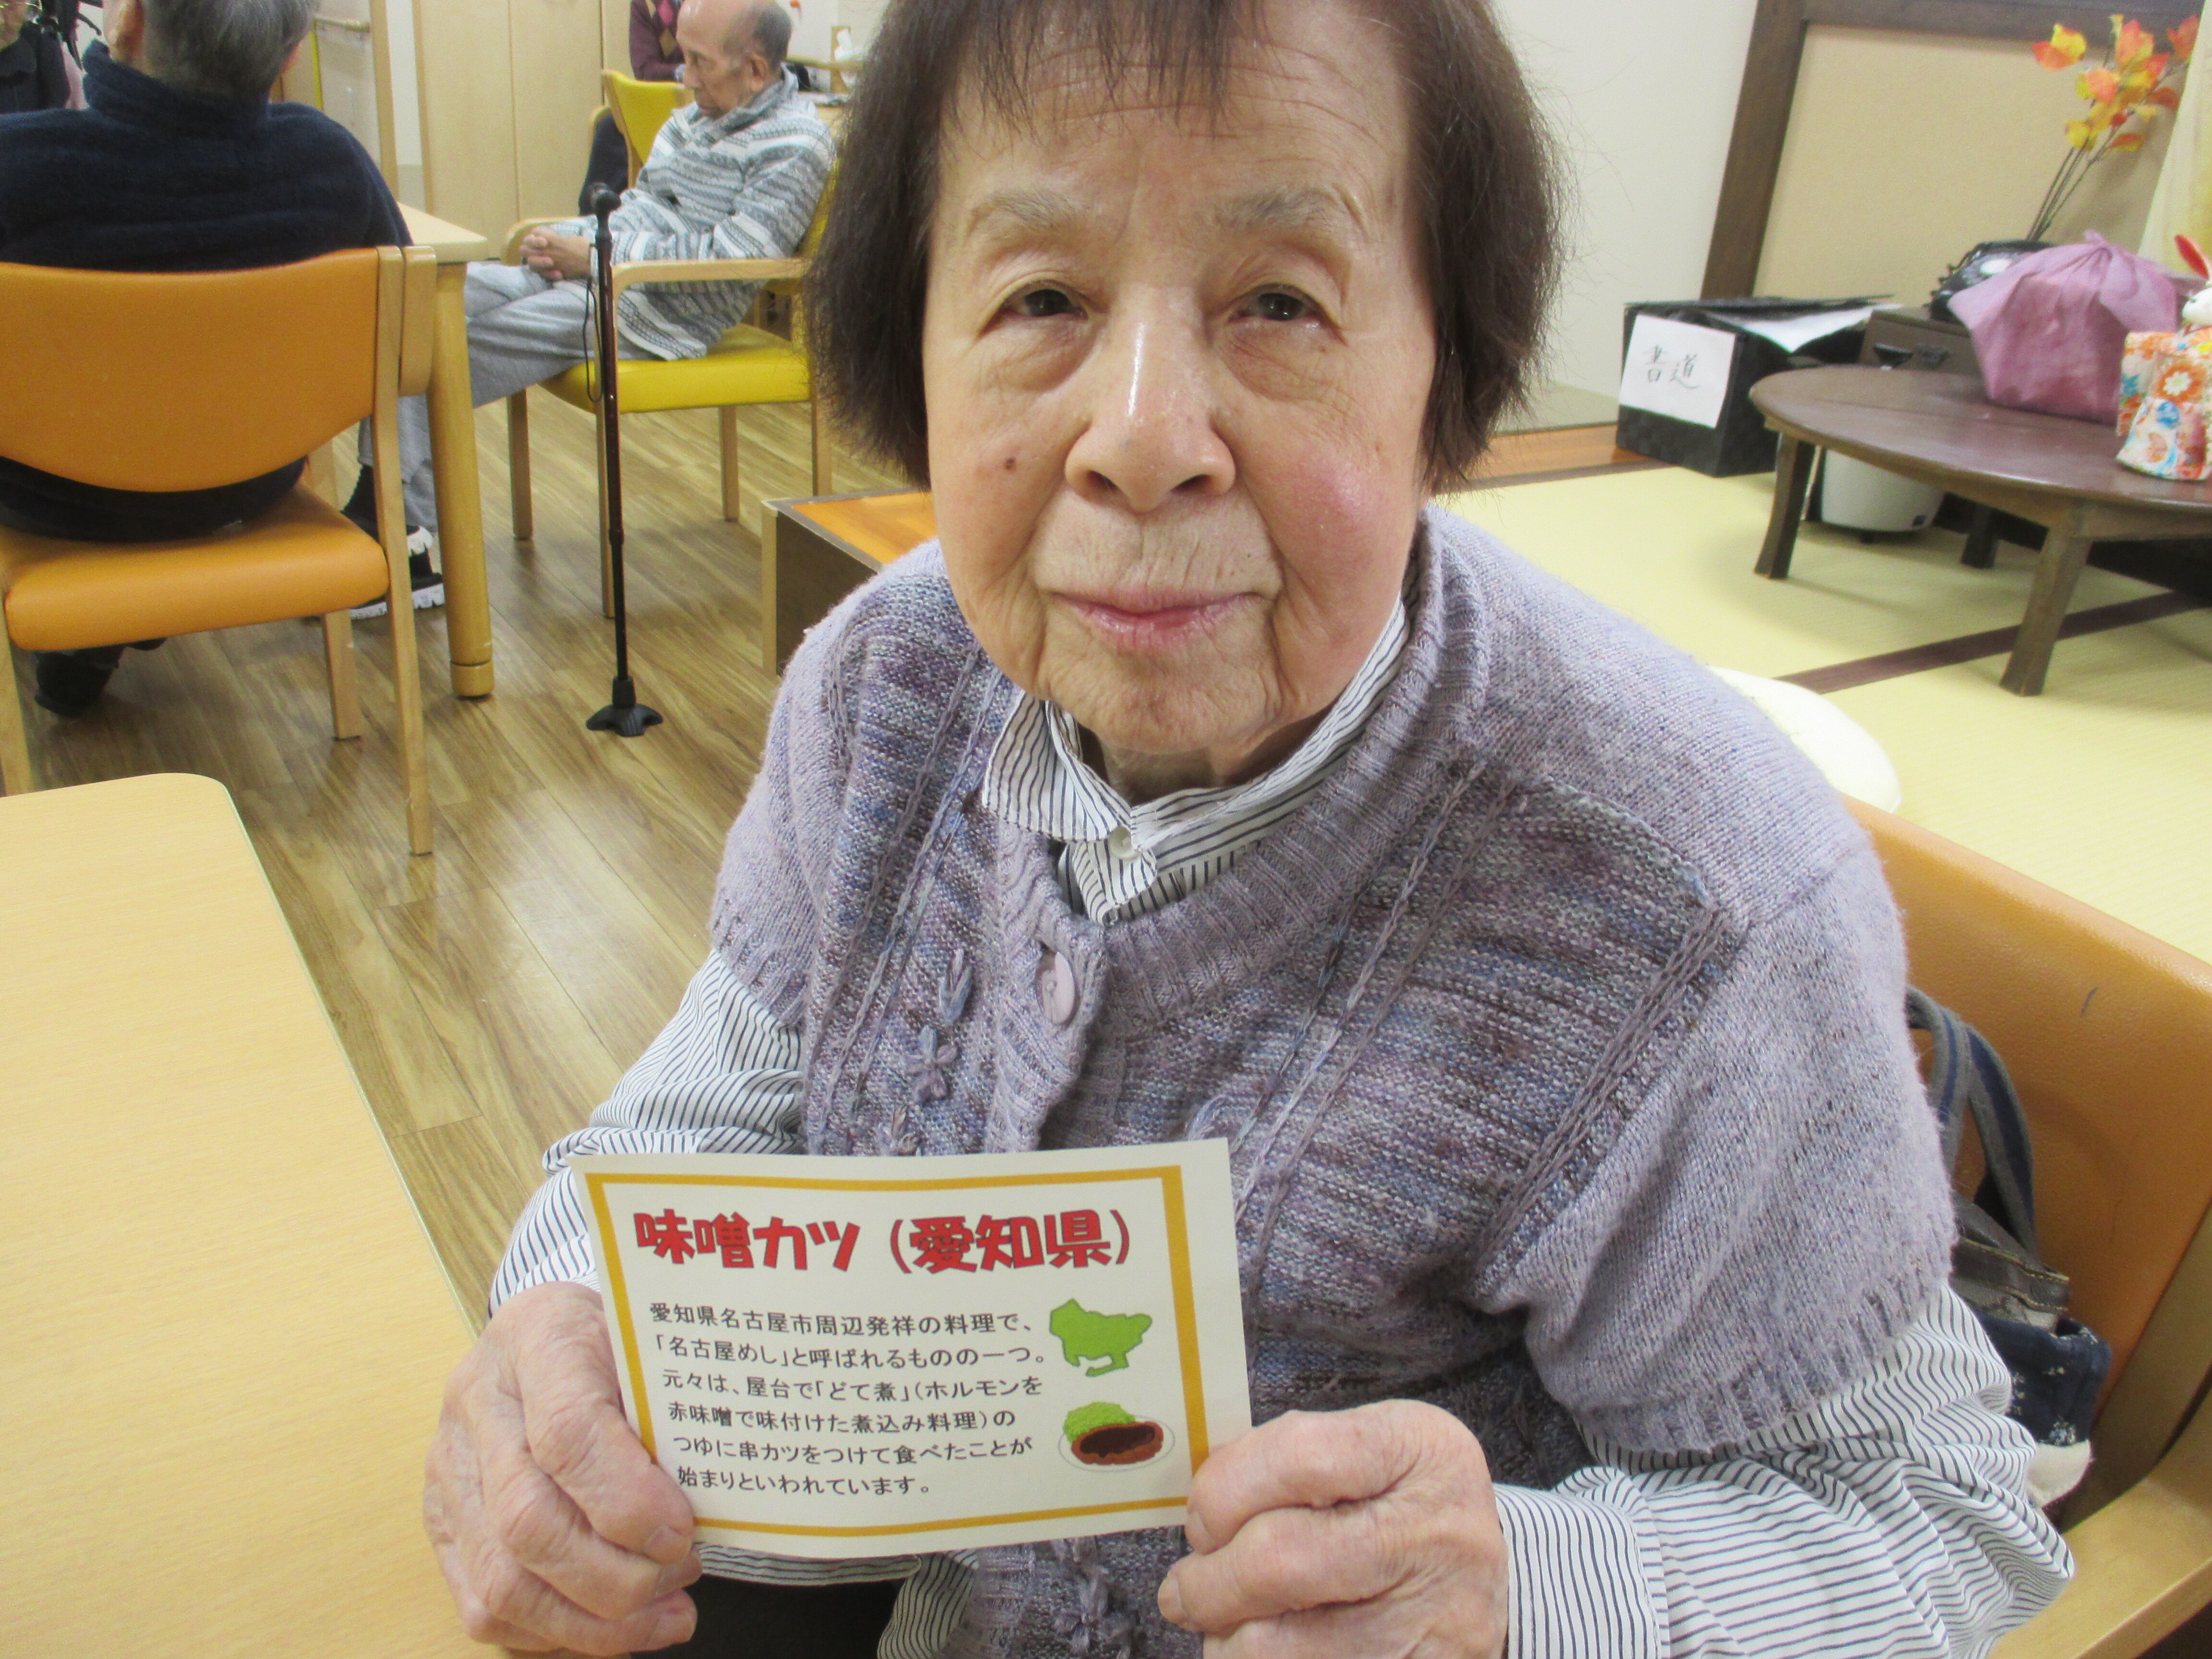 味噌カツ（愛知県）
愛知県名古屋市周辺発祥の料理で、
「名古屋めし」と呼ばれるものの一つ。
元々は、屋台で「どて煮」（ホルモンを
赤味噌で味付けた煮込み料理）の
つゆに串カツをつけて食べたことが
始まりといわれています。
書道